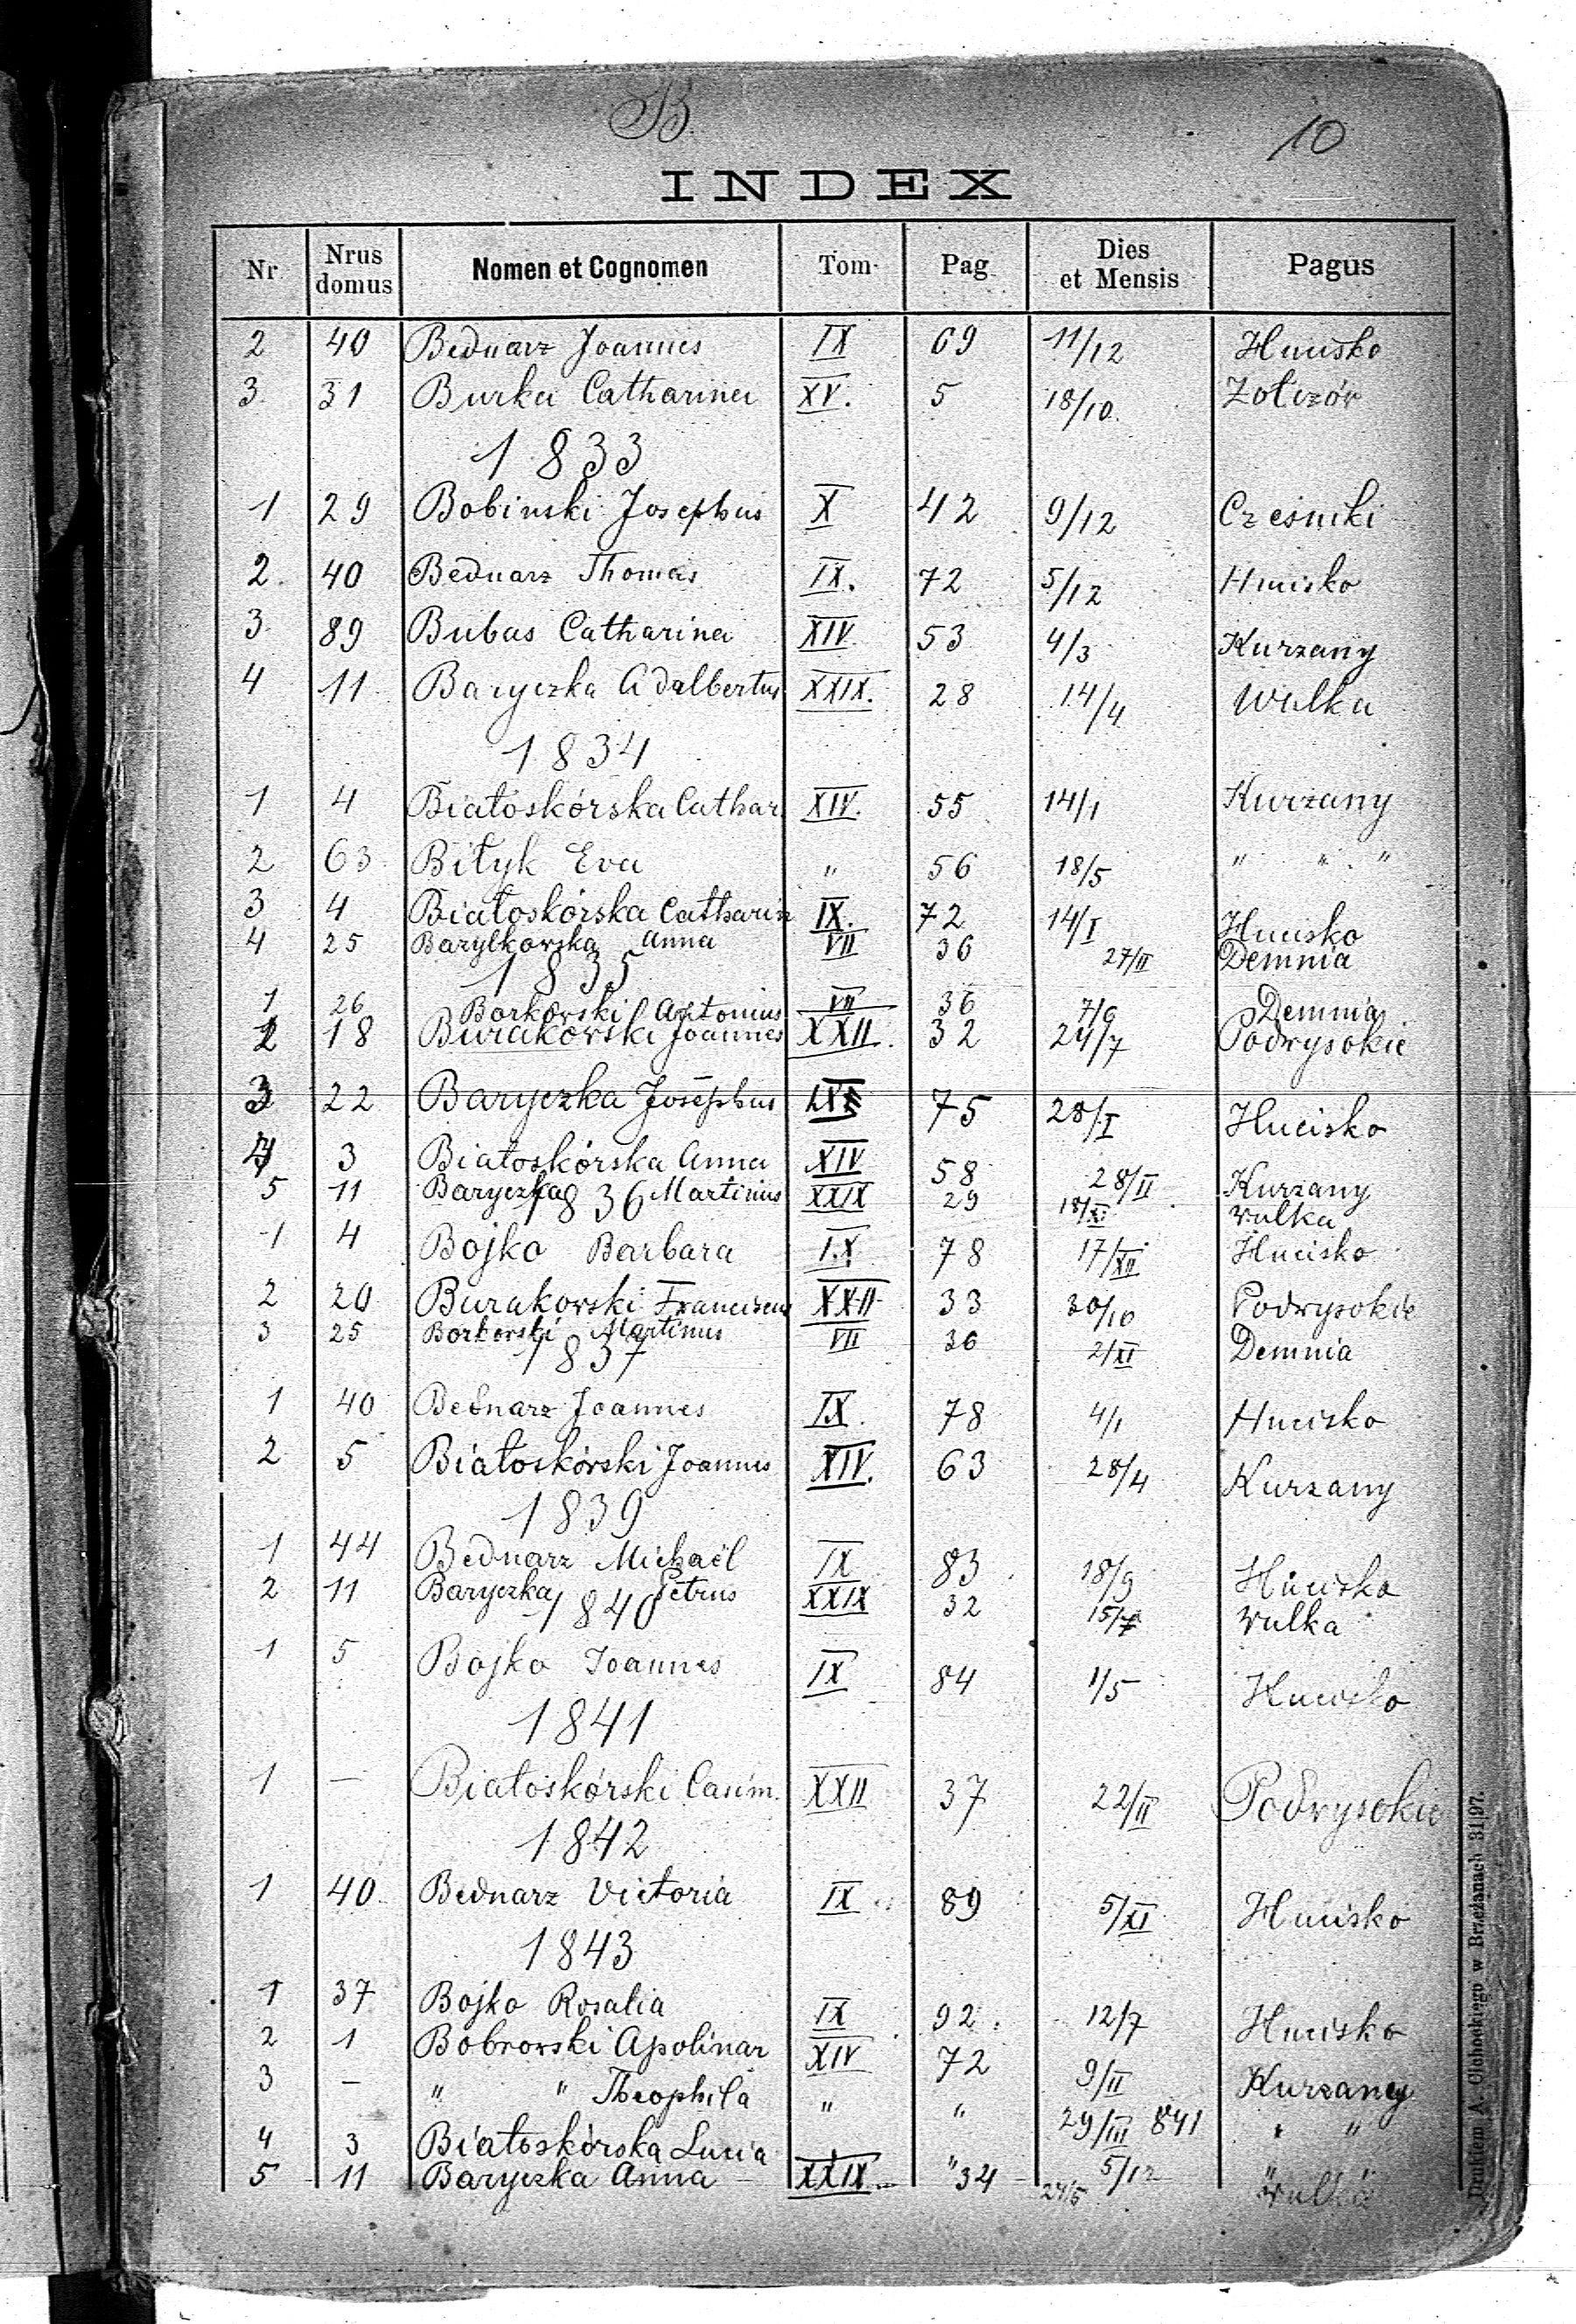 B
10
INDEX
Nr Nrus domus Nomen et Cognomen Tom. Pag Dies et Mensis Pagus
2 40 Bednarz Joannes IX 69 11/12 Hucisko
3 31 Burka Catharina XV. 5 18/10. Żołczów
1833
1 29 Bobinski Josephus X 42 9/12 Cześniki
2. 40 Bednarz Thomas IX. 72 5/12 Hucisko
3 89 Bubas Catharina XIV 53 4/3 Kurzany
4 11 Baryczka Adalbertus XXIX. 28 14/4 Wulka
1834
1 4 Białoskórska Cathar. XIV. 55 14/1 Kurzany
2 63 Bityk Eva " 56 18/5 " " "
3 4 Białoskórska Catharin IX. 72 14/I Hucisko
4 25 Barylkowska Anna VII 36 27/II Demnia
1835
1 26 Borkowski Antonius VII 36 7/6 Demnia
2 18 Burakowski Joannes XXII. 32 24/7 Podwysokie
3 22 Baryczka Josephus IX 75 28/I Hucisko
4 3 Białoskórska Anna XIV 58 28/II Kurzany
5 11 Baryczka Martinus XXIX 29 18/XI Wulka
1836
1 4 Bojko Barbara IX 78 17/XII Hucisko
2 20 Burakowski Franciscus XXII 33 30/10 Podwysokie
3 25 Borkowski Martinus VII 36 2/XI Demnia
1837
1 40 Bednarz Joannes IX. 78 4/1 Hucisko
2 5 Białoskórski Joannes XIV. 63 28/4 Kurzany
1839
1 44 Bednarz Michaël IX 83 18/9 Hucisko
2 11 Baryczka Petrus XXIX 32 Wulka
1840
1 5 Bojko Joannes IX 84 1/5 Hucisko
1841
1 — Białoskórski Casim. XXII 37 22/II Podwysokie
1842
1 40 Bednarz Victoria IX 89 5/XI Hucisko
1843
1 37 Bojko Rosalia IX 92 12/7 Hucisko
2 1 Bobrowski Apolinar XIV 72 9/II Kurzany
3 — " " Theophila " " 29/III 841 " "
4 3 Białoskórska Lucia " 5/12 " "
5 11 Baryczka Anna XXIX 34 24/5 Wulka
Drukiem A. Cichockiego w Brzeżanach 31|97.